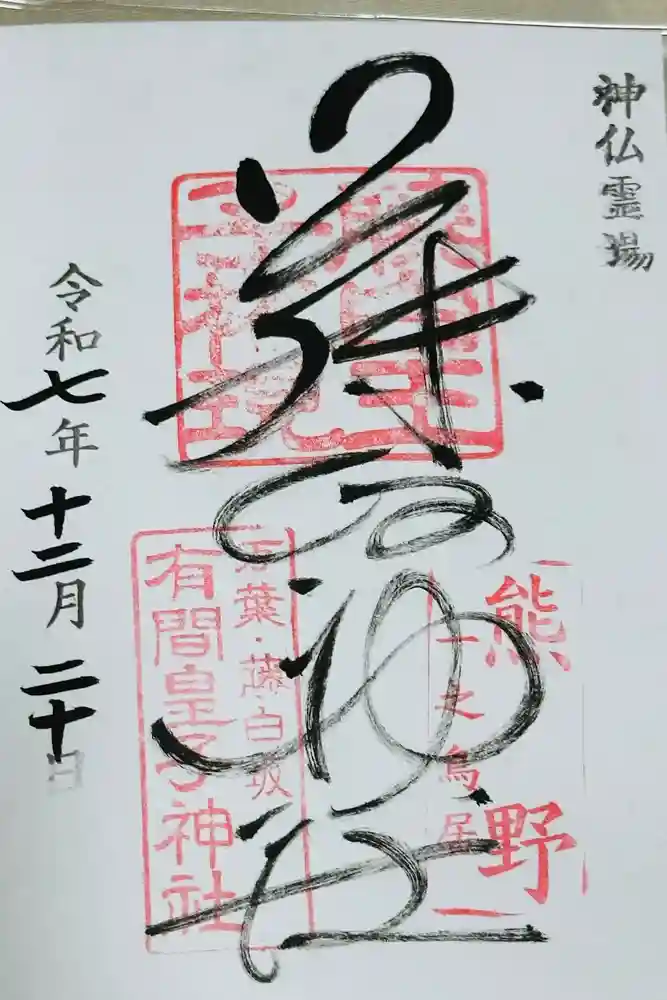 神仏霊場
藤白神社
藤白王子権現
熊野
一之鳥居
万葉・藤白坂
有間皇子神社
令和七年十二月二十日